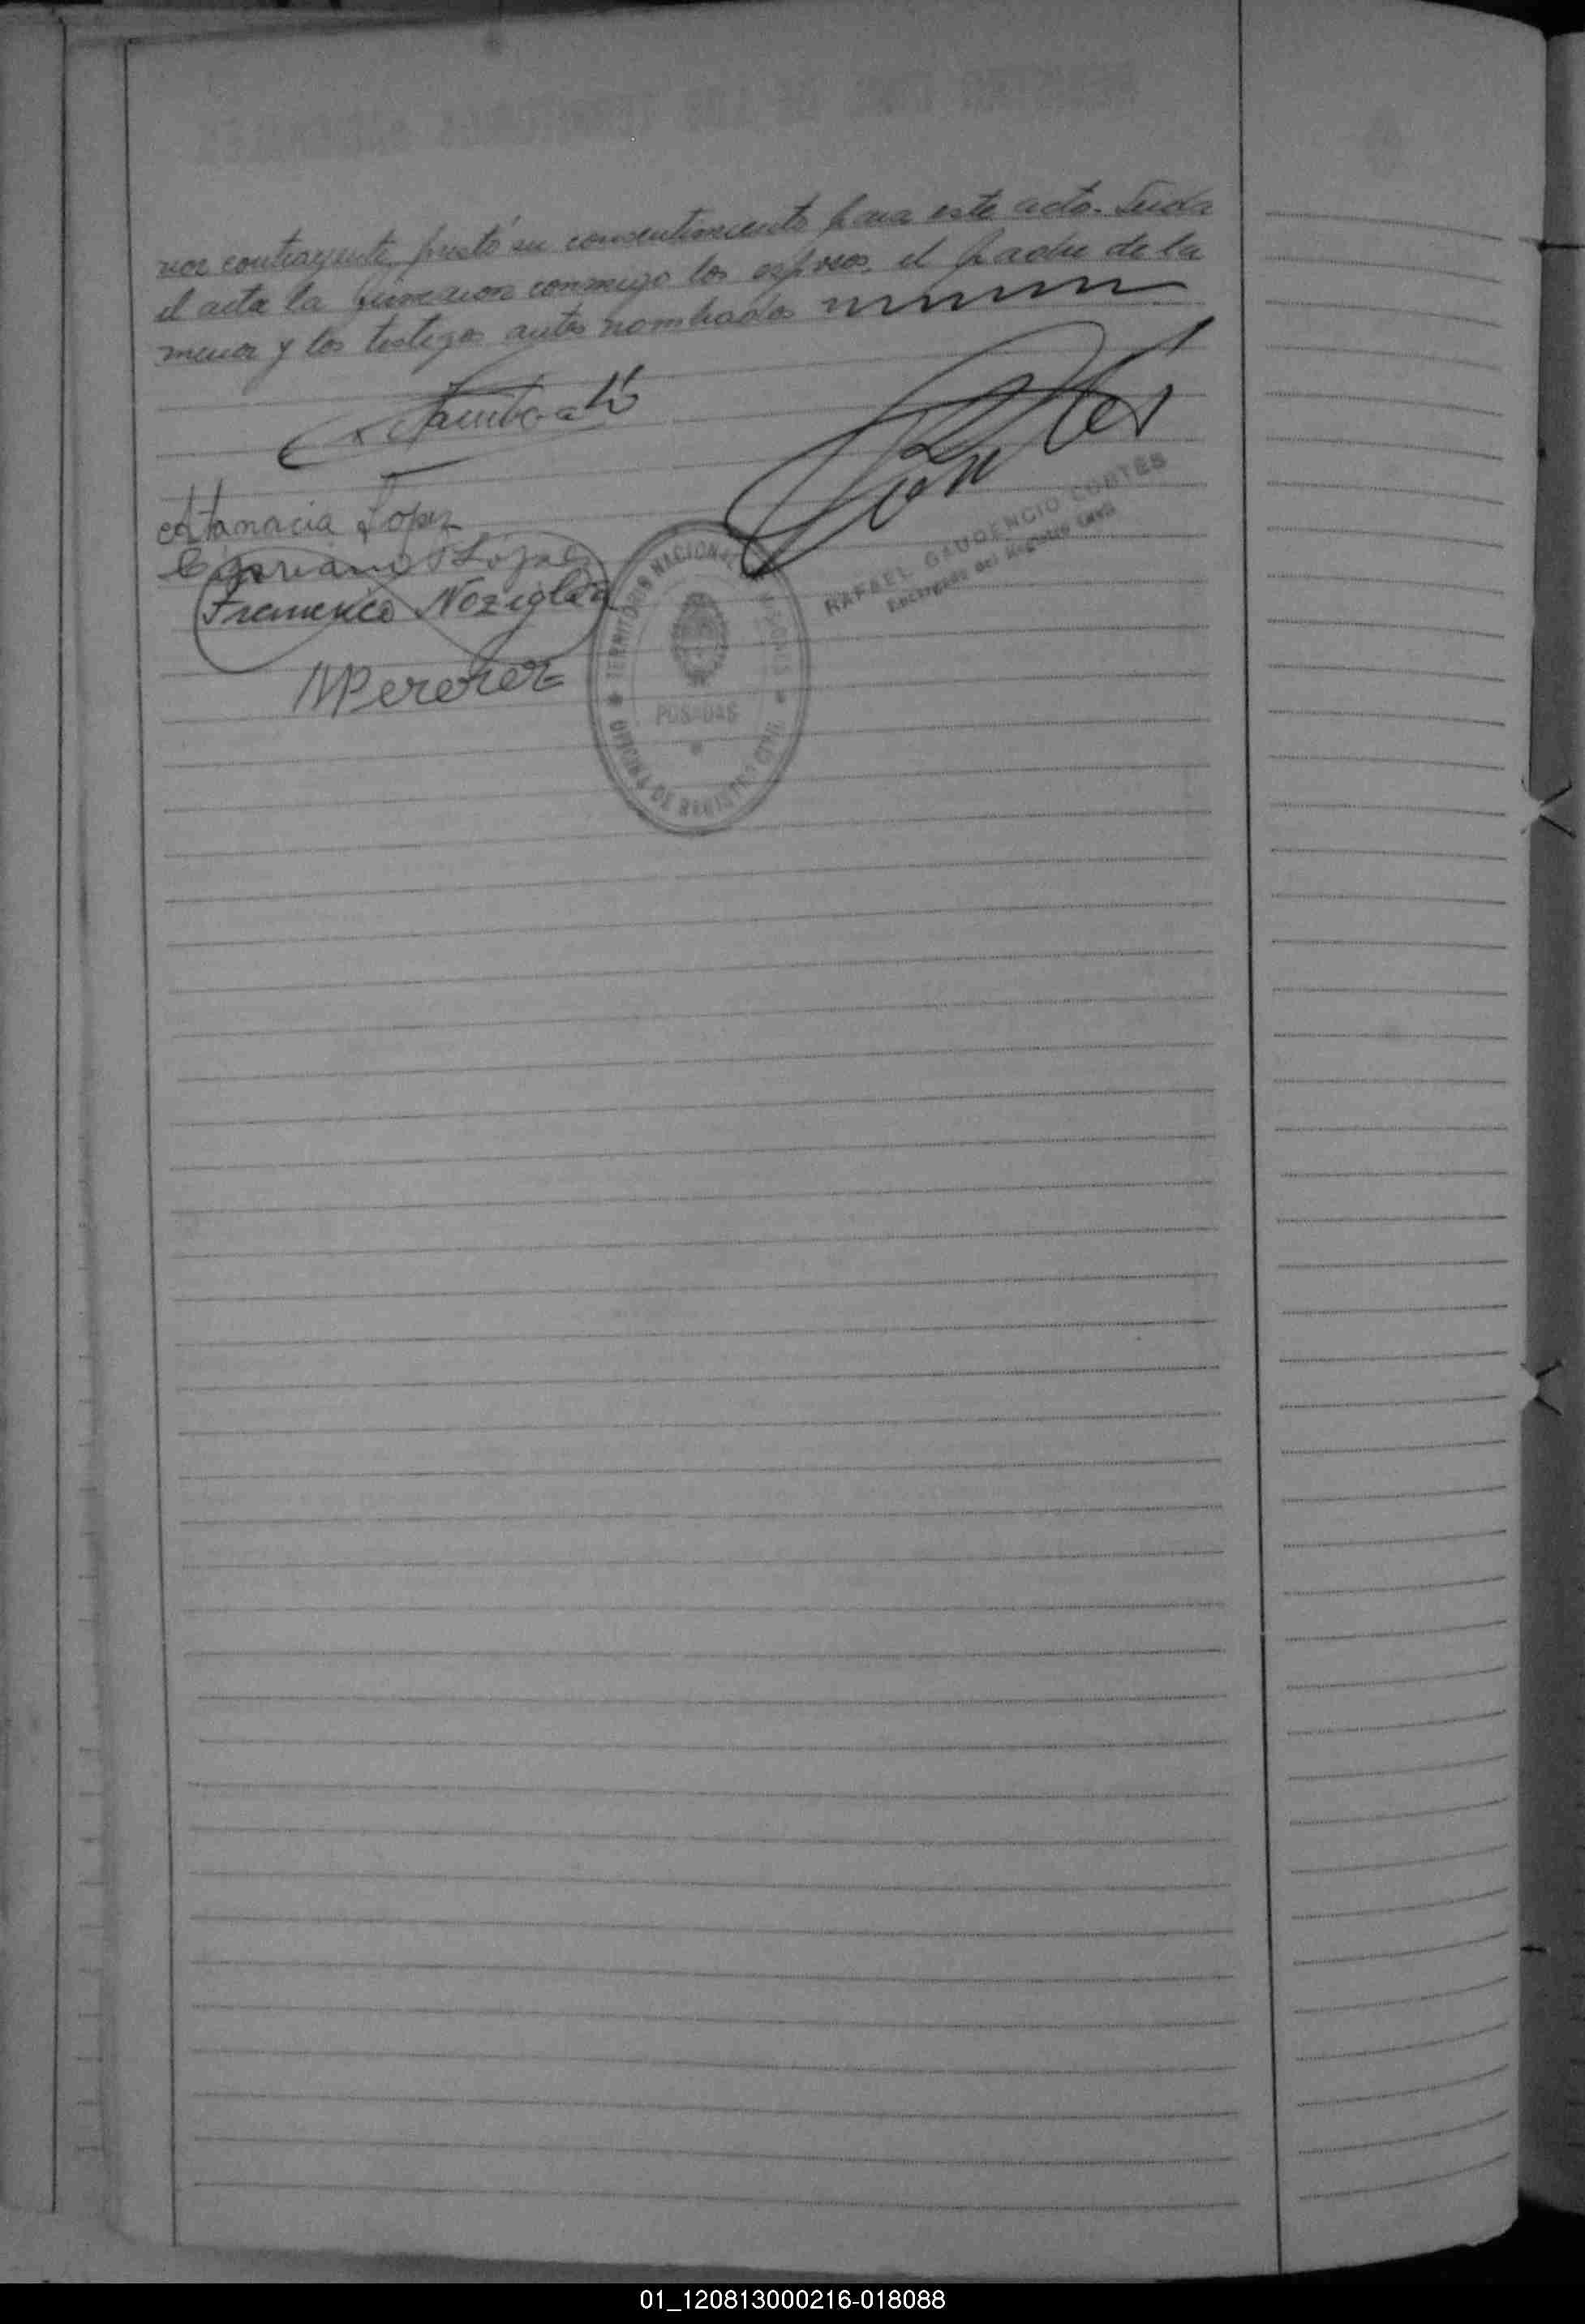 nor contrayente, prestó su consentimiento para este acto. Leida
el acta la firmaron conmigo los esposos, el padre de la
menor y los testigos antes nombrados
Atanacia Lopez
Cipriano Lopez
Francisco Noziglia
MPereker
RAFAEL GAUDENCIO CORTÉS
Encargado del Registro Civil
TERRITORIO NACIONAL MISIONES
POSADAS
OFICINA DE REGISTRO CIVIL
01_120813000216-018088